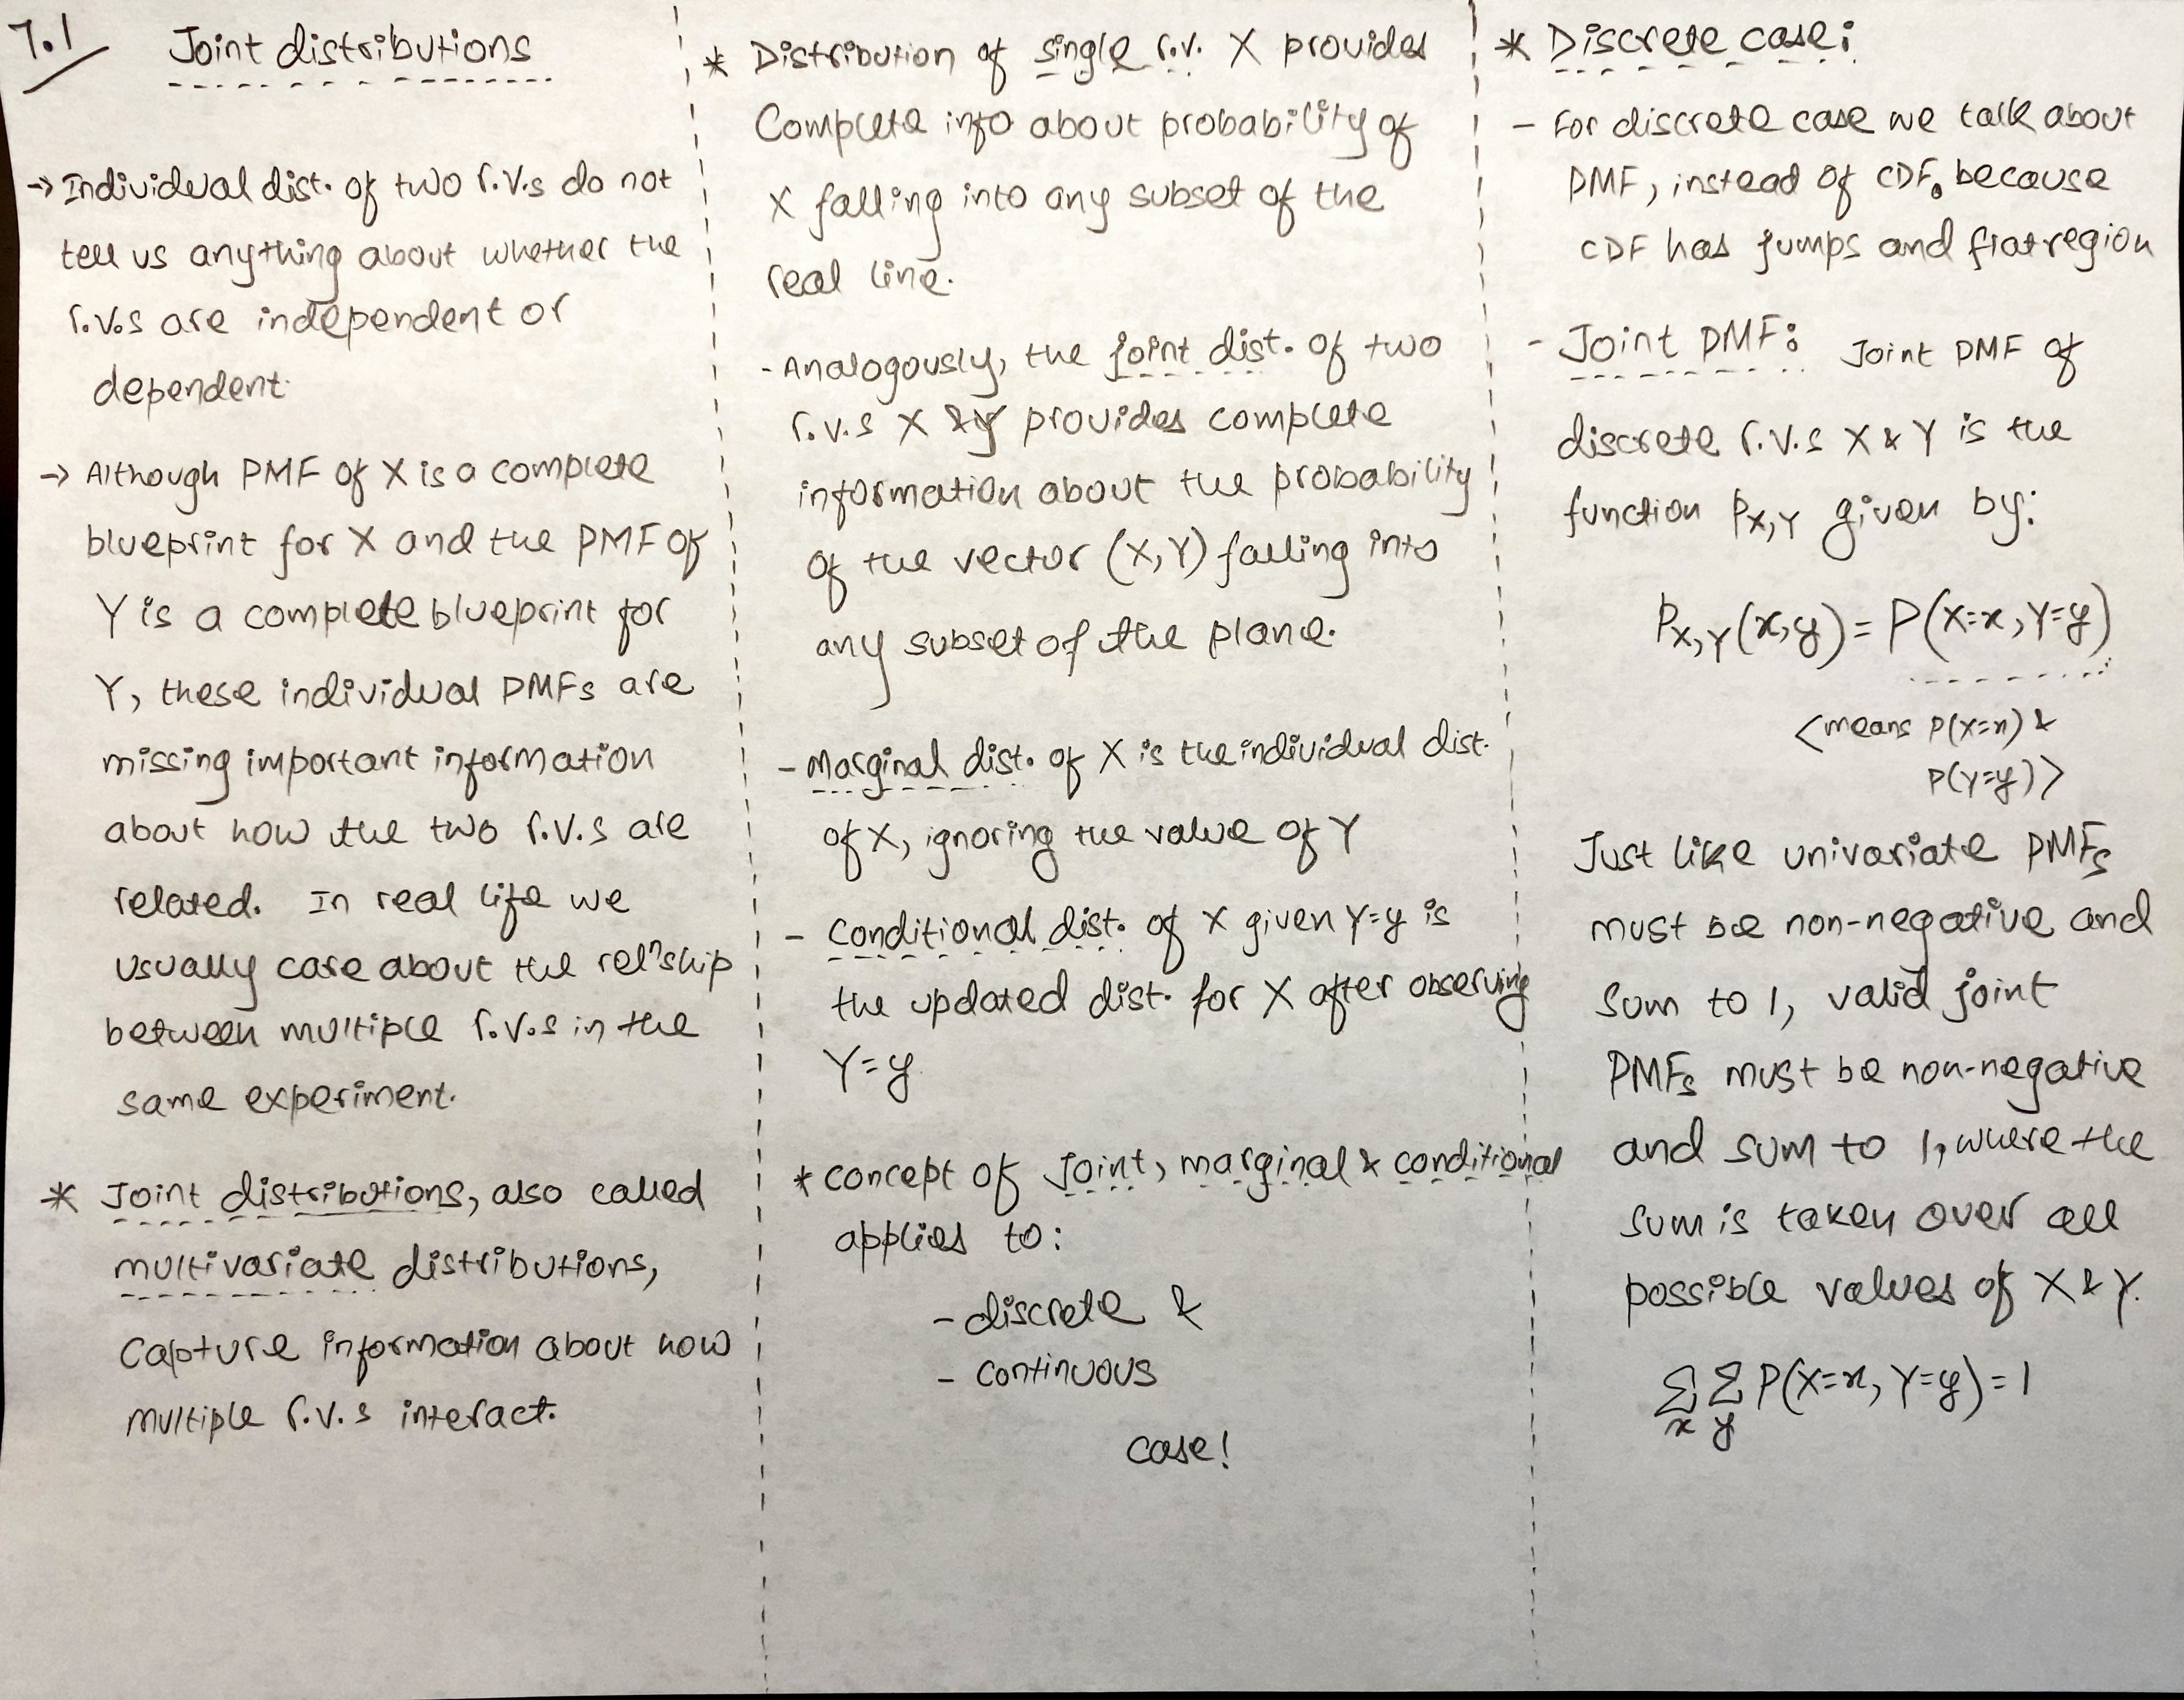 7.1
Joint distributions
→ Individual dist. of two r.v.s do not
tell us anything about whether the
r.v.s are independent or
dependent.
→ Although PMF of X is a complete
blueprint for X and the PMF of
Y is a complete blueprint for
Y, these individual PMFs are
missing important information
about how the two r.v.s are
related. In real life we
usually care about the relⁿship
between multiple r.v.s in the
same experiment.
* Joint distributions, also called
multivariate distributions,
capture information about how
multiple r.v.s interact.
* Distribution of single r.v. X provides
Complete info about probability of
X falling into any subset of the
real line.
- Analogously, the joint dist. of two
r.v.s X & Y provides complete
information about the probability
of the vector (X,Y) falling into
any subset of the plane.
- Marginal dist. of X is the individual dist.
of X, ignoring the value of Y
- Conditional dist. of X given Y=y is
the updated dist. for X after observing
Y=y
* concept of Joint, marginal & conditional
applies to:
- discrete &
- continuous
case!
* Discrete case:
- For discrete case we talk about
PMF, instead of CDF. because
CDF has jumps and flat region
- Joint PMF: Joint PMF of
discrete r.v.s X & Y is the
function P_{X,Y} given by:
P_{X,Y}(x,y) = P(X=x, Y=y)
<means P(X=x) &
P(Y=y)>
Just like univariate PMFs
must be non-negative and
sum to 1, valid joint
PMFs must be non-negative
and sum to 1, where the
sum is taken over all
possible values of X & Y.
∑_x ∑_y P(X=x, Y=y) = 1